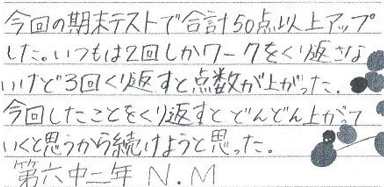 今回の期末テストで合計50点以上アップ
した。いつもは2回しかワークをくり返さな
いけど3回くり返すと点数が上がった.
今回したことをくり返すとどんどん上がって
いくと思うから続けようと思った。
第六中二年 N.M